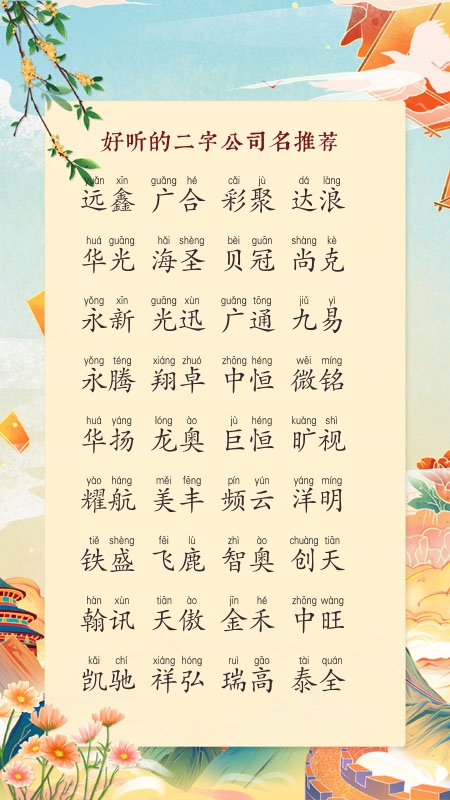 好听的二字公司名推荐
yuǎn xīn guǎng hé cǎi jù dá làng
远鑫 广合 彩聚 达浪
huá guāng hǎi shèng bèi guān shàng kè
华光 海圣 贝冠 尚克
yǒng xīn guāng xùn guǎng tōng jiǔ yì
永新 光迅 广通 九易
yǒng téng xiáng zhuó zhōng héng wēi míng
永腾 翔卓 中恒 微铭
huá yáng lóng ào jù héng kuàng shì
华扬 龙奥 巨恒 旷视
yào háng měi fēng pín yún yáng míng
耀航 美丰 频云 洋明
tiě shèng fēi lù zhì ào chuàng tiān
铁盛 飞鹿 智奥 创天
hàn xùn tiān ào jīn hé zhōng wàng
翰讯 天傲 金禾 中旺
kǎi chí xiáng hóng ruì gāo tài quán
凯驰 祥弘 瑞高 泰全